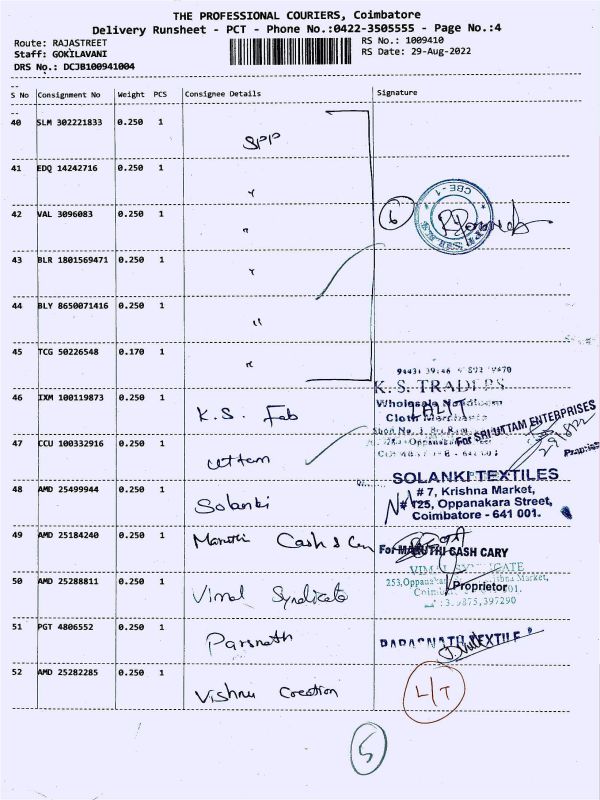 THE PROFESSIONAL COURIERS, Coimbatore
Delivery Runsheet - PCT - Phone No.:0422-3505555 - Page No.:4
Route: RAJASTREET
RS No.: 1009410
Staff: GOKILAVANI
RS Date: 29-Aug-2022
DRS No.: DCJB100941004
S No Consignment No Weight PCS Consignee Details Signature
40 SLM 302221833 0.250 1 SPP
41 EDQ 14242716 0.250 1 "
42 VAL 3096083 0.250 1 "
6
CBE-1
43 BLR 1801569471 0.250 1 "
44 BLY 8650071416 0.250 1 "
45 TCG 50226548 0.170 1 "
46 IXM 100119873 0.250 1 K.S. Fab
K.S. TRADERS
Wholesale Handloom
Cloth Merchants
LALIT
47 CCU 100332916 0.250 1 Uttam
For SRI UTTAM ENTERPRISES
48 AMD 25499944 0.250 1 Solanki
SOLANKI TEXTILES
# 7, Krishna Market,
# 125, Oppanakara Street,
Coimbatore - 641 001.
49 AMD 25184240 0.250 1 Maruthi Cash & Carry
For MARUTHI CASH CARY
Proprietor
50 AMD 25288811 0.250 1 Vimal Syndicate
VIMAL SYNDICATE
51 PGT 4806552 0.250 1 Parsnath
PARASNATH TEXTILE
52 AMD 25282285 0.250 1 Vishnu Creation
L/T
5